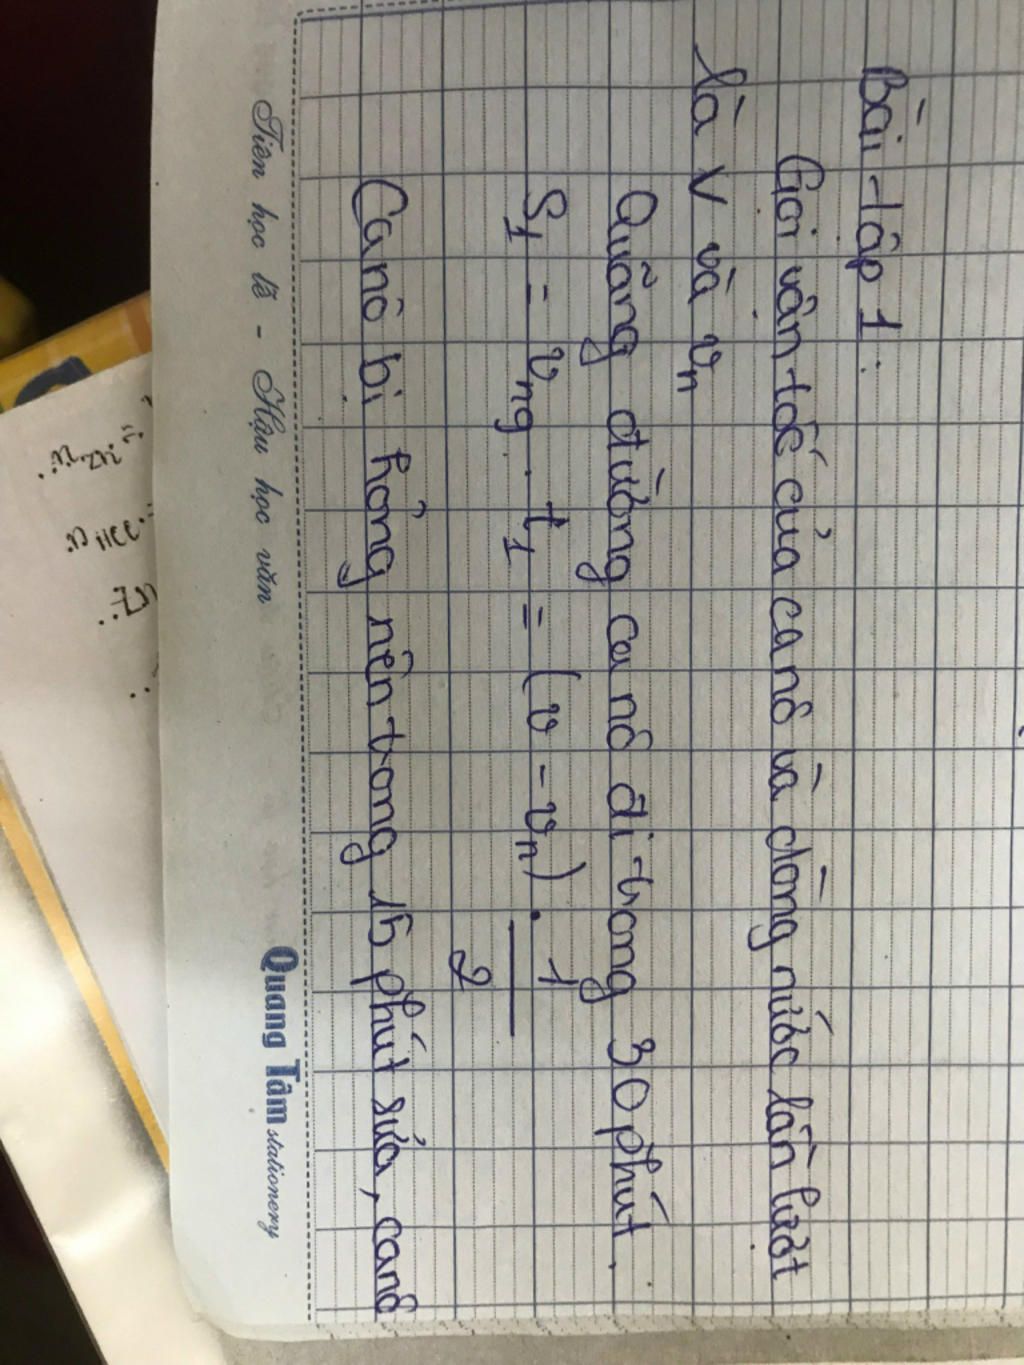 Bài tập 1:
Gọi vận tốc của ca nô và dòng nước lần lượt
là V và vn
Quãng đường ca nô đi trong 30 phút.
S1 = vng . t1 = (v - vn) . 1/2
Ca nô bị hỏng nên trong 15 phút sửa, ca nô
Tiên học lễ - Hậu học văn
Quang Tâm stationery